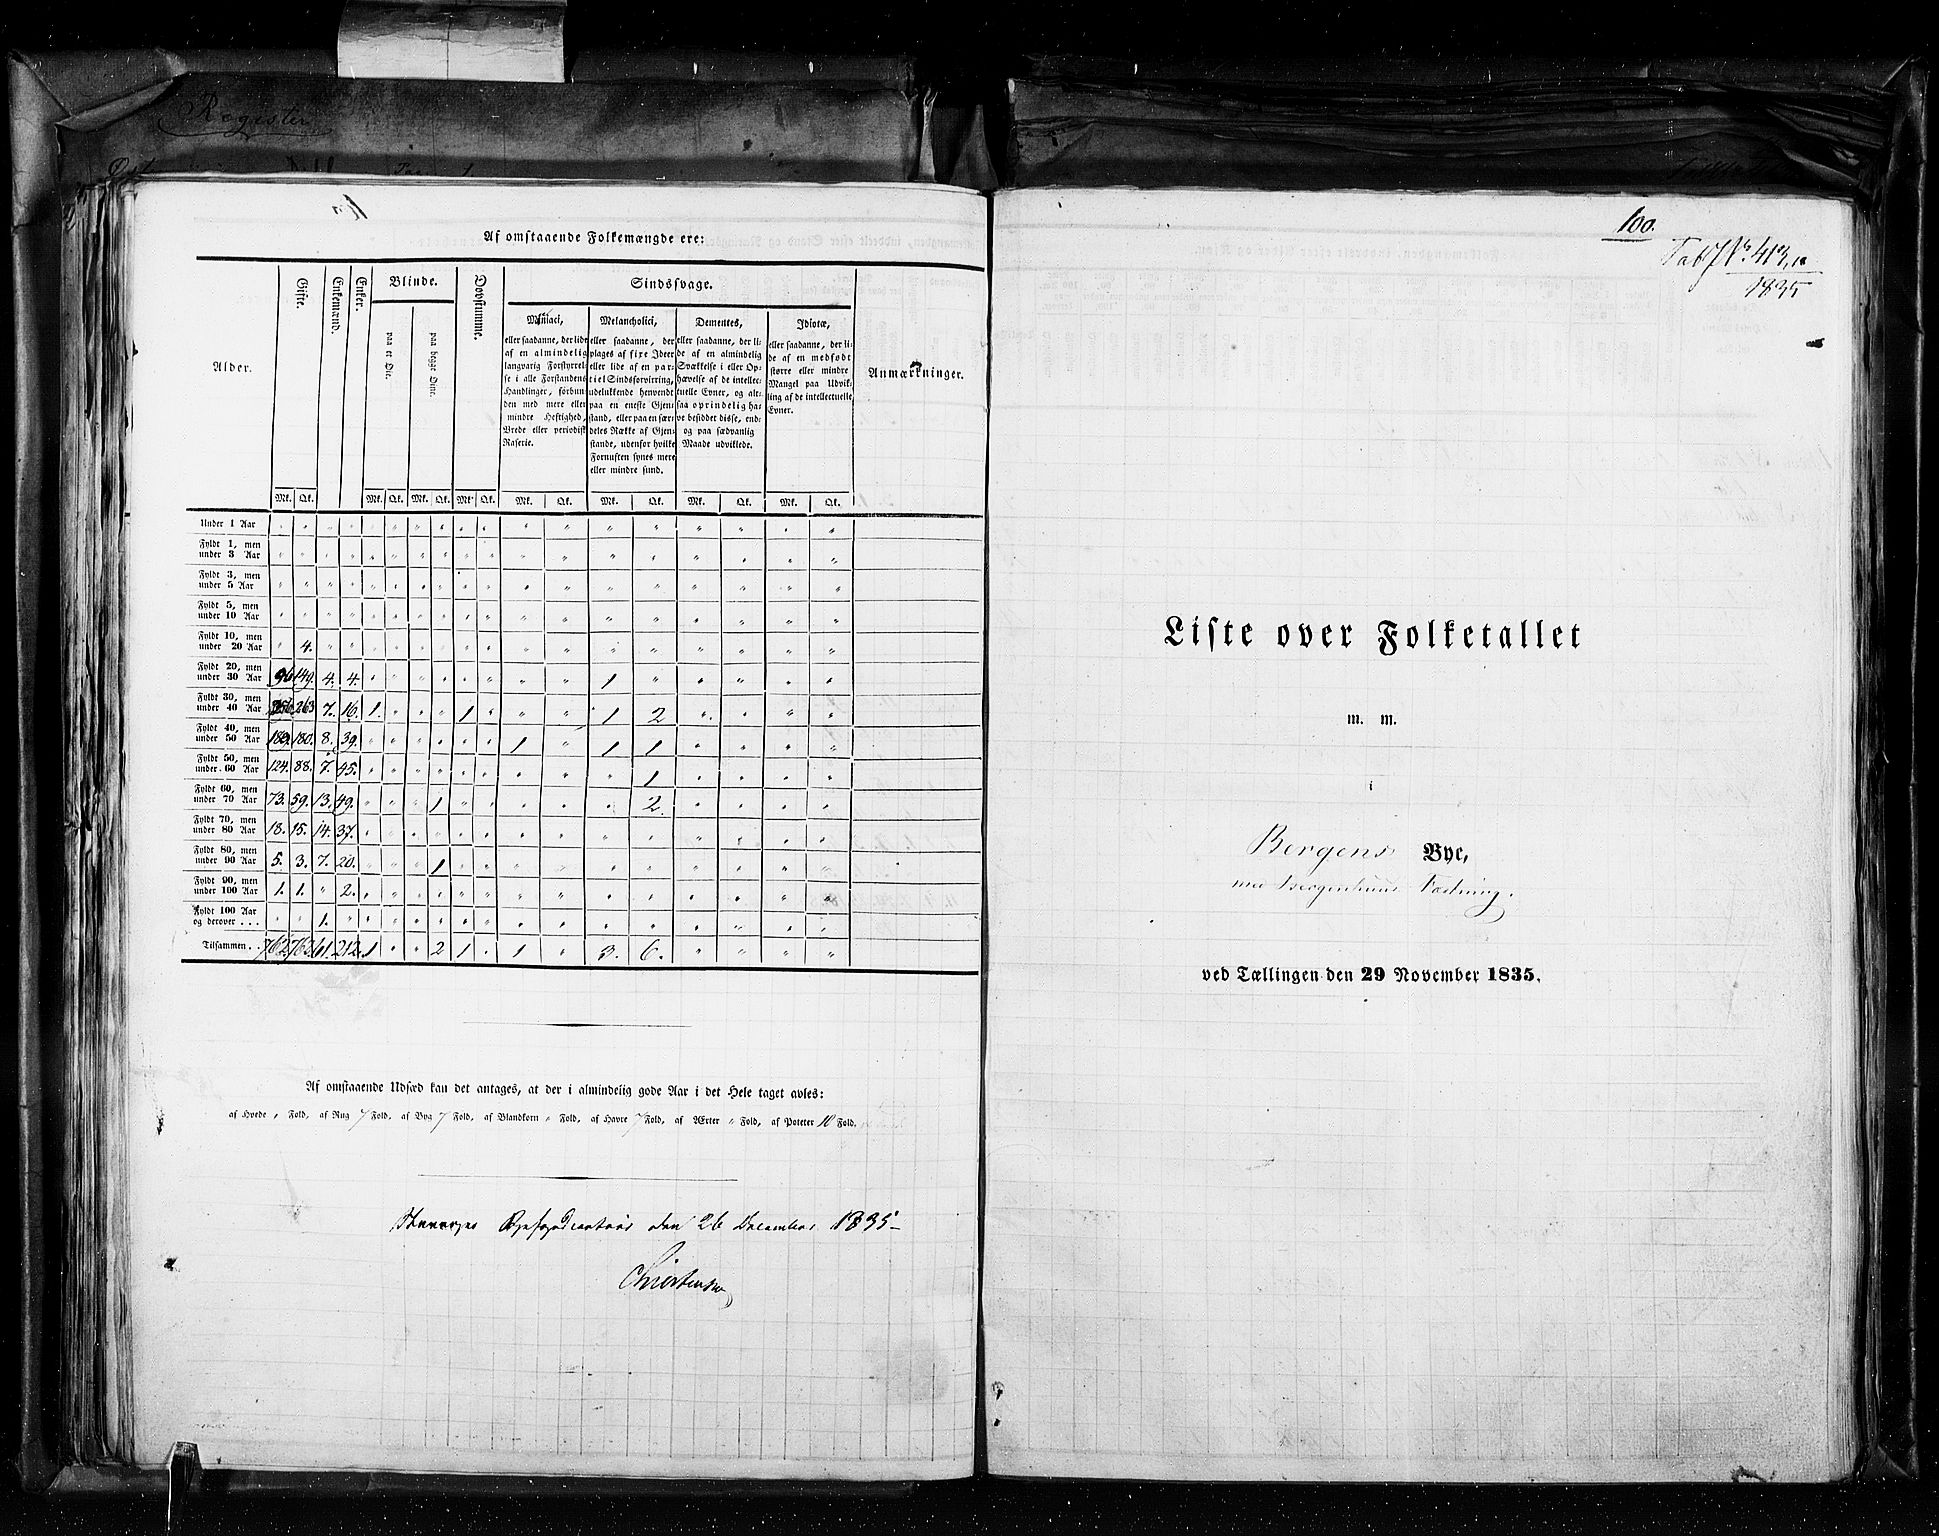 Register
Af omstaaende Folkemængde ere:
Alder. Gifte. Enkemænd. Enker. Blinde. Døvstumme. Sindssvage. Anmærkninger.
paa et Øie. paa begge Øine.
Maniaci,
eller saadanne, der lide
af en almindelig
langvarig Forstyrrel-
se i alle Forstandens
Handlinger, forbun
den med mere eller
mindre Heftighed,
Vrede eller periodisk
Raserie.
Melancholici,
eller saadanne, der
plages af fixe Ideer
eller lide af en par-
tiel Sindsforvirring,
udelukkende henvendt
paa en eneste Gjen-
stand, eller paa en sær-
deles Række af Gjen-
stande, udenfor hvilke
Fornuften synes mere
eller mindre sund.
Dementes,
eller saadanne, der li-
de af en almindelig
Svækkelse i eller Op-
hævelse af de intellec-
tuelle Evner, og alt-
saa oprindelig ha-
ve besiddet disse, end-
og paa sædvanlig
Maade udviklede.
Idiotæ,
eller saadanne, der li-
de af en medfødt
større eller mindre
Mangel paa Udvik-
ling af de intellectuelle
Evner.
Mk. Qk. Mk. Qk. Mk. Qk. Mk. Qk. Mk. Qk. Mk. Qk. Mk. Qk. Mk. Qk.
Under 1 Aar " " " " " " " " " " " " " " " " " "
Fyldt 1, men
under 3 Aar " " " " " " " " " " " " " " " " " "
Fyldt 3, men
under 5 Aar " " " " " " " " " " " " " " " " " "
Fyldt 5, men
under 10 Aar " " " " " " " " " " " " " " " " " "
Fyldt 10, men
under 20 Aar " 4. " " " " " " " " " " " " " " " "
Fyldt 20, men
under 30 Aar 96 149. 4. 4. " " " " " " " " 1 " " " " "
Fyldt 30, men
under 40 Aar 263 7. 16. 1. " " " 1 " " " 1 2 " " " "
Fyldt 40, men
under 50 Aar 180. 8. 39. " " " " " " 1 " 1 1 " " " "
Fyldt 50, men
under 60 Aar 124. 88. 7. 45. " " " " " " " " " 1 " " " "
Fyldt 60, men
under 70 Aar 73. 59. 13. 49. " " " 1 " " " " " 2 " " " "
Fyldt 70, men
under 80 Aar 18. 15. 14. 37. " " " " " " " " " " " " " "
Fyldt 80, men
under 90 Aar 5. 3. 7. 20. " " " 1 " " " " " " " " " "
Fyldt 90, men
under 100 Aar 1. 1. " 2. " " " " " " " " " " " " " "
Fyldt 100 Aar
og derover . . . " " 1. " " " " " " " " " " " " " " "
Tilsammen . . 762. 762. 61. 212. 1 " " 2 1 " 1 " 3. 6. " " " "
Af omstaaende Udsæd kan det antages, at der i almindelig gode Aar i det Hele taget avles:
af Hvede " Fold, af Rug 7 Fold, af Byg 7 Fold, af Blandkorn " Fold, af Havre 7 Fold, af Ærter " Fold, af Poteter 10 Fold.
den 26 December 1835
Christensen
100.
Tab N° 413,
1835
Liste over Folketallet
m. m.
i
Bergens Bye,
med Bergenhuus Fæstning.
ved Tællingen den 29 November 1835.